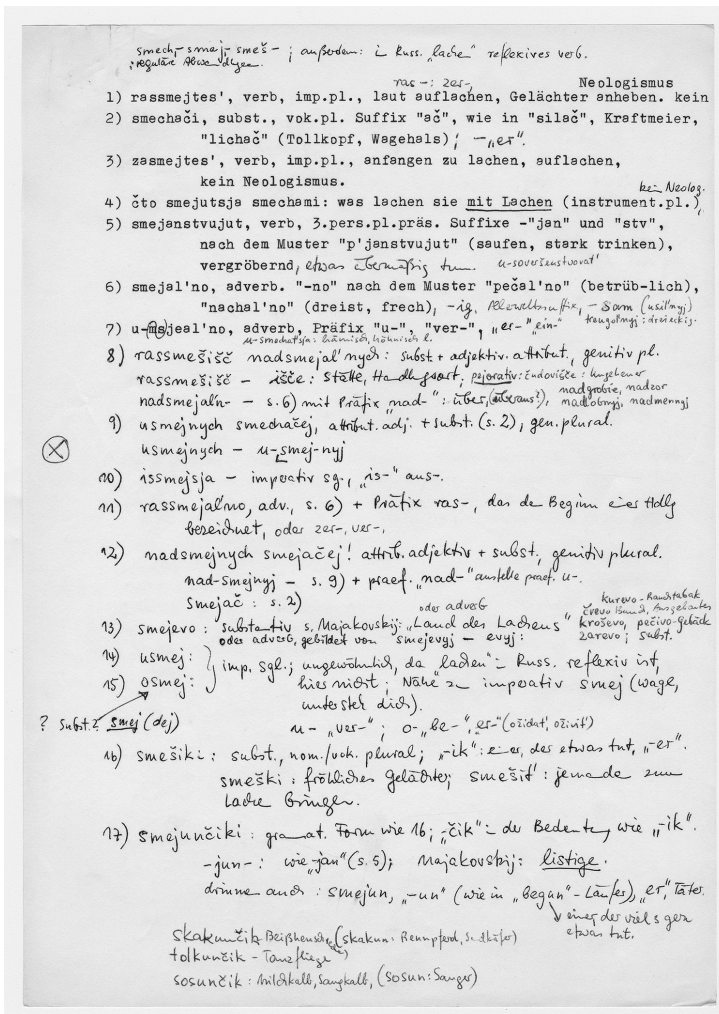 smech,- smaj,- smeš - ; außerdem: i Russ. "lachen" reflexives verb.
: reguläre Abwandlungen.
ras-: zer-, Neologismus
1) rassmejtes', verb, imp.pl., laut auflachen, Gelächter anheben. kein
2) smechači, subst., vok.pl. Suffix "ač", wie in "silač", Kraftmeier,
"lichač" (Tollkopf, Wagehals); -"er".
3) zasmejtes', verb, imp.pl., anfangen zu lachen, auflachen,
kein Neologismus.
kein Neolog.
4) čto smejutsja smechami: was lachen sie mit Lachen (instrument.pl.),
5) smejanstvujut, verb, 3.pers.pl.präs. Suffixe -"jan" und "stv",
nach dem Muster "p'janstvujut" (saufen, stark trinken),
vergröbernd, etwas übermäßig tun. u-soveršenstvovat'
6) smejal'no, adverb. "-no" nach dem Muster "pečal'no" (betrüb-lich),
"nachal'no" (dreist, frech), -ig, -sam (usil'nyj)
7) u-smjeal'no, adverb, Präfix "u-", "ver-", "er-" "ein-" treugol'nyj: dreieckig.
u-smechat'sja: hämisch, höhnisch l.
8) rassmešišč nadsmejal'nych: subst + adjektiv. attribut, genitiv pl.
rassmešišč - išče: Stätte, Handlungsort, pejorativ: čudovišče: Ungeheuer
nadsmejal'n- - s. 6) mit Präfix "nad-": über, (überaus?), nadgrobie, nadzor
nadlobnyj, nadmennyj
9) usmejnych smechačej, attribut. adj. + subst. (s. 2), gen. plural.
usmejnych - u-smej-nyj
10) issmejsja - imperativ sg., "is-" aus-.
11) rassmejal'no, adv., s. 6) + Präfix ras-, das den Beginn einer Hdlg
bezeichnet, oder zer-, ver-,
12) nadsmejnych smejačej! attrib. adjektiv + subst., genitiv plural.
nad-smejnyj - s. 9) + praef. "nad-" anstelle praef. u-.
smejač: s. 2)
oder adverb kurevo - Rauchtabak
13) smejevo: substantiv s. Majakovskij: "Land des Lachens" kroševo, pečivo-Gebäck
oder adverb, gebildet von smejevyj - evyj: zarevo; subst.
14) usmej: } imp. sgl.; ungewöhnlich, da "lachen" i Russ. reflexiv ist,
15) osmej: hier nicht; Nähe zu imperativ smej (wage,
untersteh dich).
? Subst.? smej (dej) u- "ver-"; o- "be-", "er-" (ožidat', oživit')
16) smešiki: subst., nom./vok. plural; "-ik": einer, der etwas tut, "-er".
smeški: fröhliches Gelächter; smešit': jemanden zum
Lachen bringen.
17) smejunčiki: grammat. Form wie 16; "-čik" in der Bedeutung wie "-ik".
-jun-: wie "jan" (s. 5); Majakovskij: listige.
drinnen auch: smejun, "-un" (wie in "begun" - Läufer), "er", Täter.
einer der viel + gern
etwas tut.
skakunčik - (skakun: Rennpferd, Sandkäfer)
tolkunčik - Tanzfliege
sosunčik: Milchkalb, Saugkalb, (sosun: Sauger)